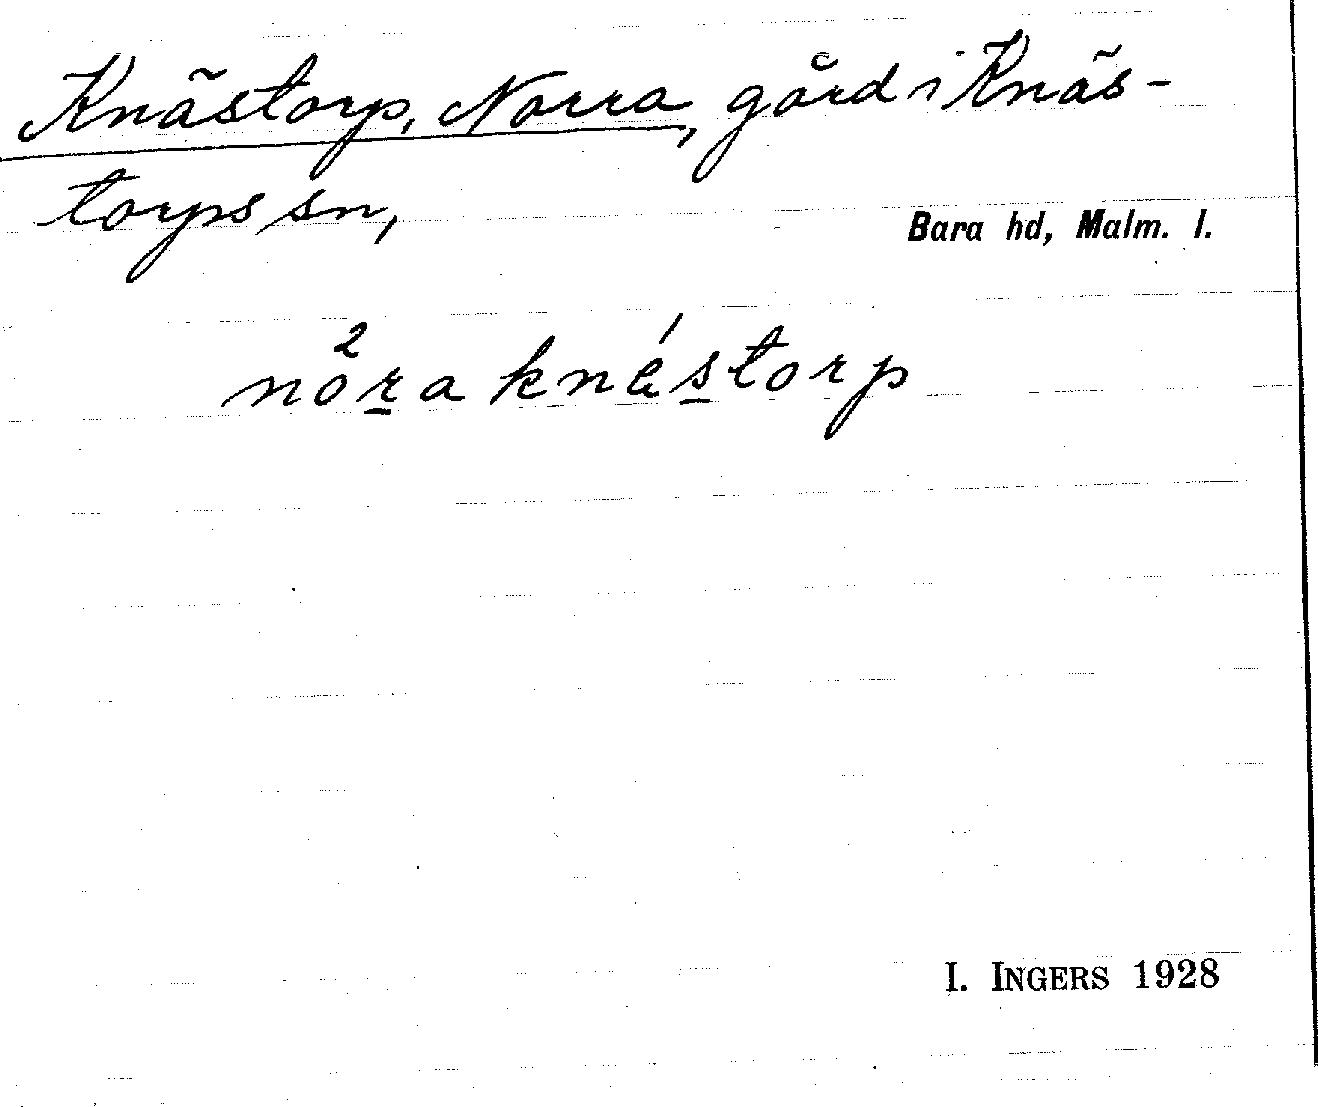 Knästorp, Norra, gård i Knäs-
torps sn,
Bara hd, Malm. l.
nò²r̲a knés̲torp
I. INGERS 1928